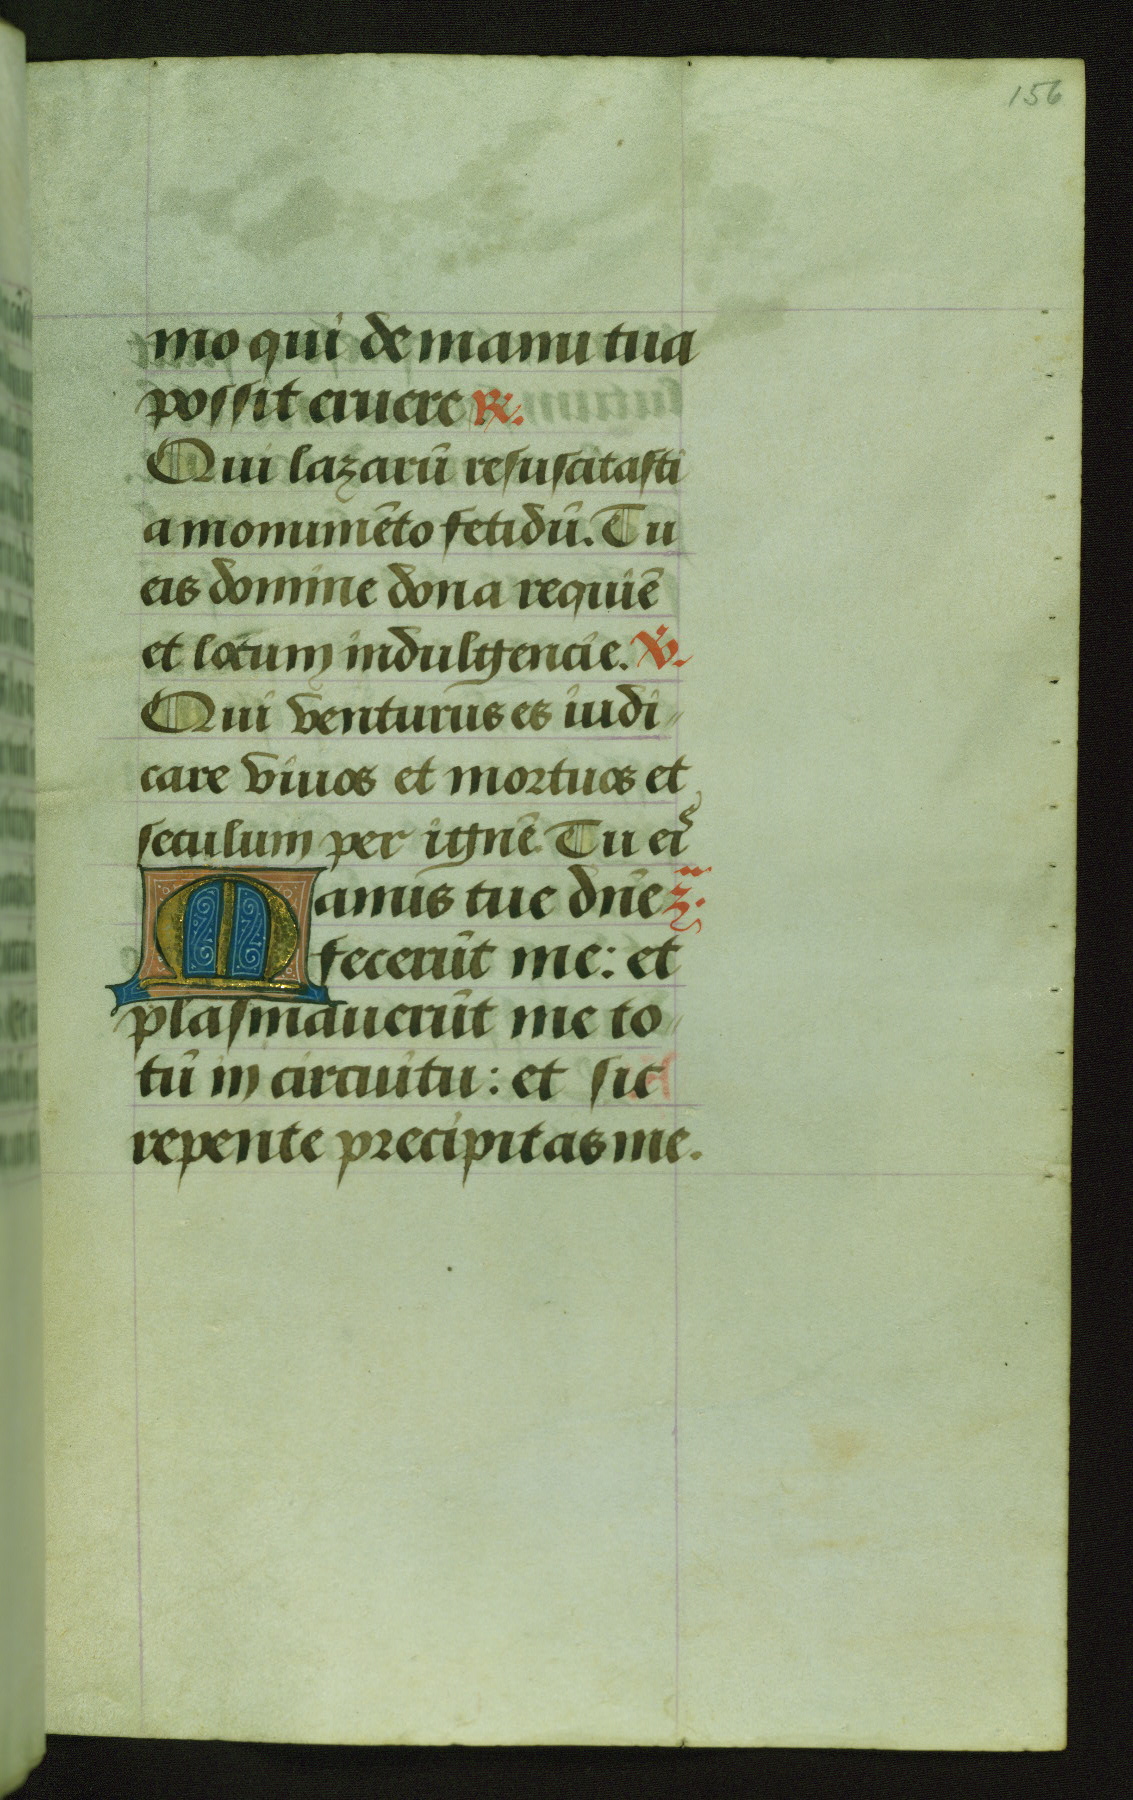 156
mo qui de manu tua
possit eruere ℟.
Qui lazarū resuscitasti
a monumēto fetidū. Tu
eis domine dona requiē
et locum indulgencie. ℣.
Qui venturus es iudi
care viuos et mortuos et
seculum per ignē Tu eis
Manus tue dn̄e
fecerūt me: et
plasmauerūt me to
tū in circuitu: et sic
repente precipitas me.